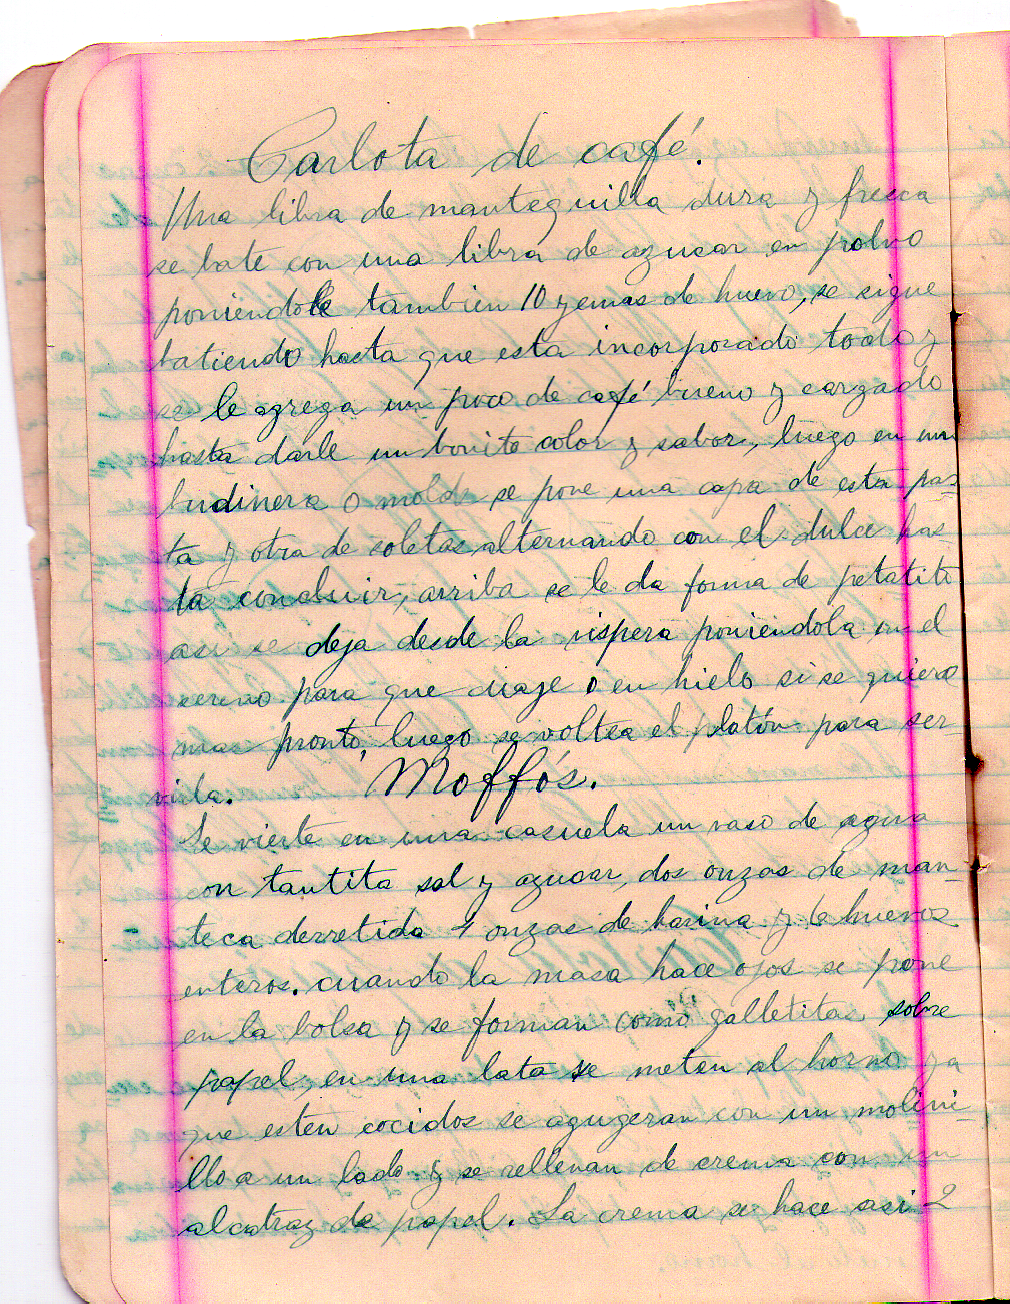 Carlota de café.
Una libra de mantequilla dura y fresca
se bate con una libra de azucar en polvo
poniendole tambien 10 yemas de huevo, se sigue
batiendo hasta que esta incorporado todo y
se le agrega un poco de café bueno y cargado
hasta darle un bonito color y sabor, luego en un
budinera o molde se pone una capa de esta pas-
ta y otra de soletas, alternando con el dulce has
ta concluir, arriba se le da forma de petatito
asi se deja desde la vispera poniendola en el
sereno para que cuaje o en hielo si se quiere
mas pronto, luego se voltea el platón para ser-
virla.
Moffós.
Se vierte en una casuela un vaso de agua
con tantita sal y azucar, dos onzas de man-
teca derretida 4 onzas de harina y 6 huevos
enteros. cuando la masa hace ojos se pone
en la bolsa y se forman como galletitas sobre
papel, en una lata se meten al horno ya
que esten cocidos se agugeran con un molini
llo a un lado y se rellenan de crema con un
alcatraz de papel. La crema se hace asi 2